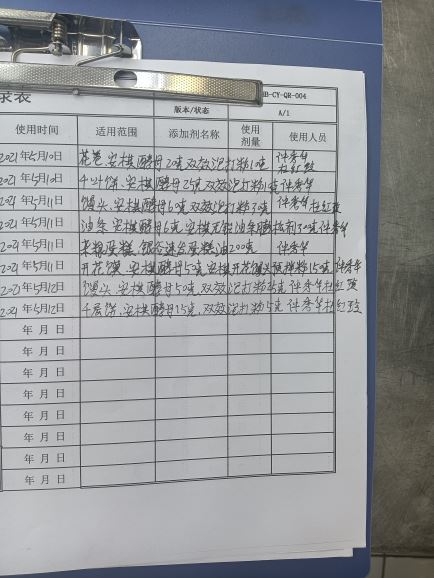 录表
HB-CY-QR-004
版本/状态 A/1
使用时间 适用范围 添加剂名称 使用剂量 使用人员
2021年5月10日 花卷、安棋酵母20克双效泡打粉10克 许秀华
杜红
2021年5月10日 千叶饼、安棋酵母25克双效泡打粉 克 许秀华
2021年5月11日 馒头、安棋酵母60克双效泡打粉30克 许秀华杜红
2021年5月11日 油条 安棋酵母6克安棋无铝油条膨松剂50克许秀华
2021年5月11日 蛋糕 速合蛋糕油200克 许秀华
2021年5月11日 开花馍、安棋酵母50克安棋开花馒头预拌粉150克 许秀华
2021年5月12日 馒头、安棋酵母50克、双效泡打粉 5克 许秀华杜红
2021年5月12日 千层饼、安棋酵母15克、双效泡打粉5克 许秀华杜红
年 月 日
年 月 日
年 月 日
年 月 日
年 月 日
年 月 日
年 月 日
年 月 日